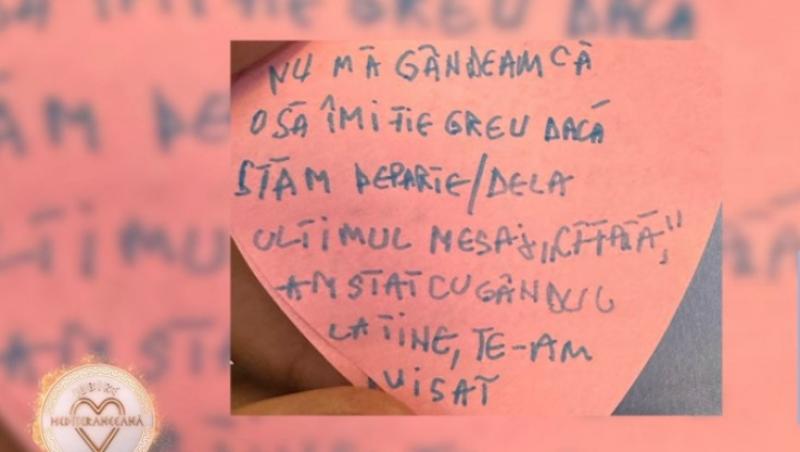 NU MĂ GÂNDEAM CĂ
O SĂ ÎMI FIE GREU DACĂ
STĂM DEPARTE/DE LA
ULTIMUL MESAJ,
AM STAT CU GÂNDUL
LA TINE, TE-AM
VISAT
IUBIRE
MEDITERANEEANĂ